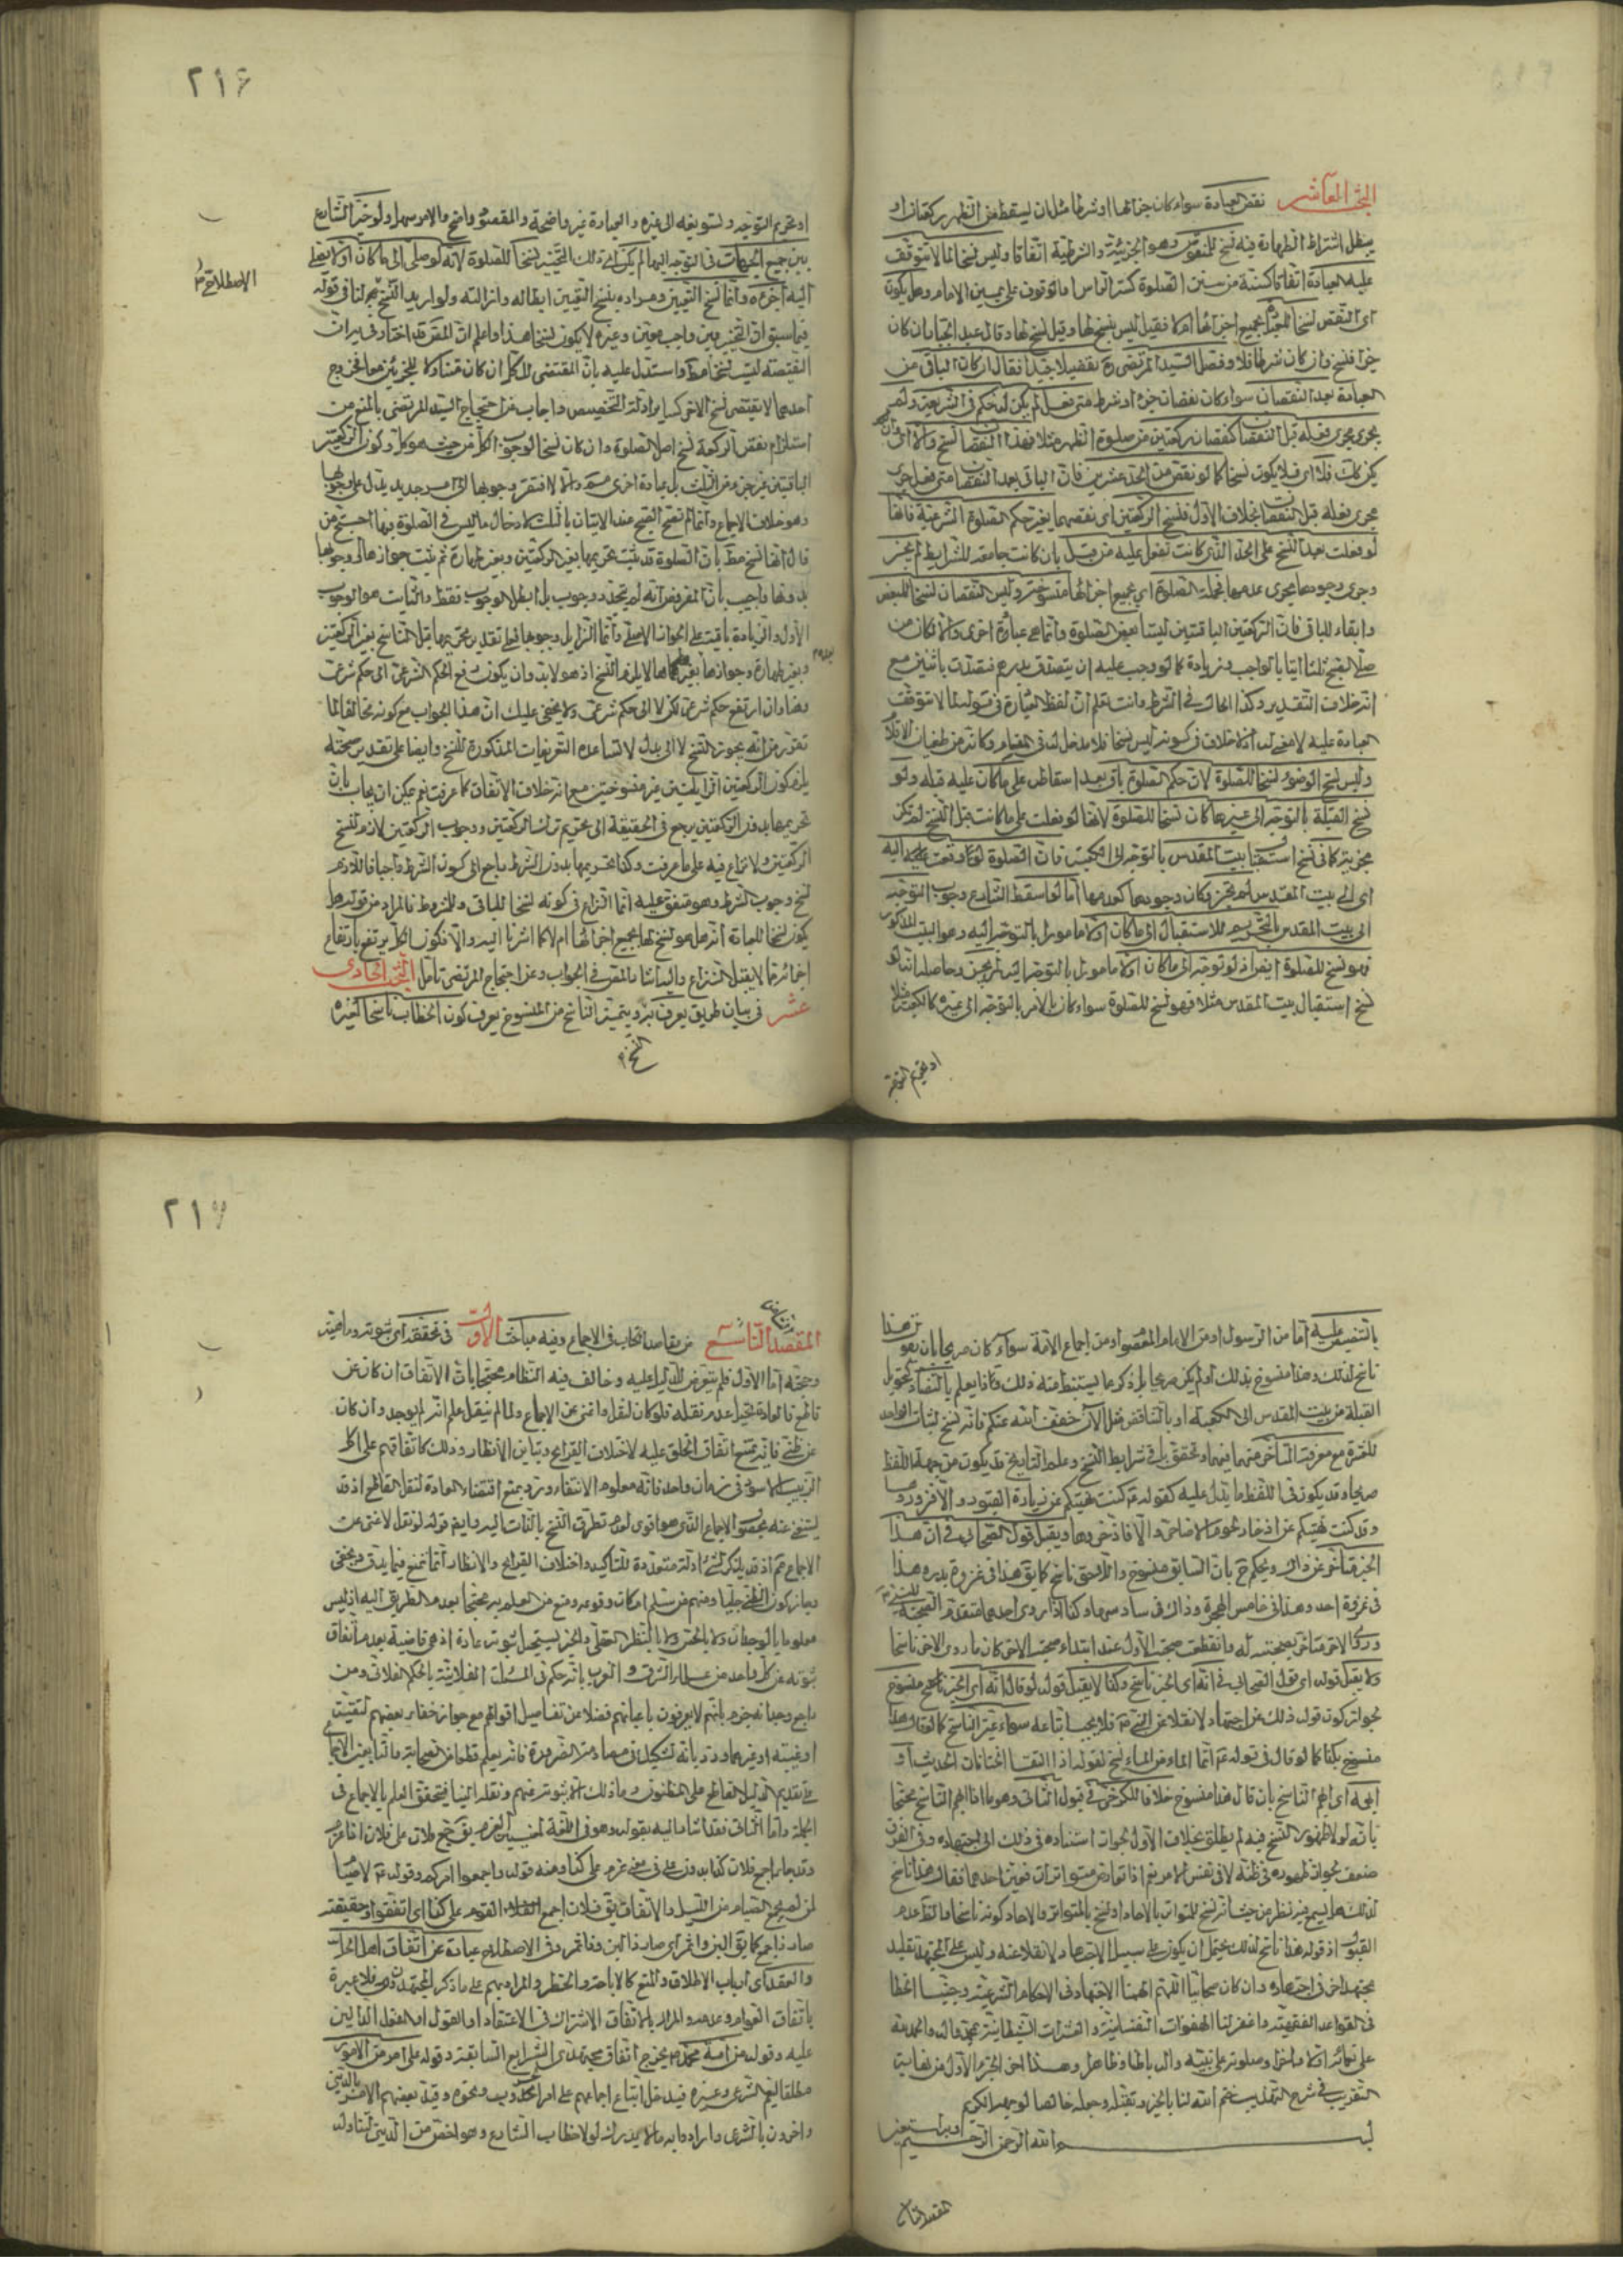 البحث العاشر نقص العبادة سواء كان جزءا لها او شرطا مثل ان يسقط من الظهر ركعتان او
يبطل اشتراط الطهارة فيه نسخ للمنقوص وهو الجزئية والشرطية اتفاقا وليس نسخا لما لا يتوقف
عليه العبادة اتفاقا كسنة من سنن الصلوة كستر الراس او الوقوف على يمين الامام وهل يكون
اى النقص نسخا لجميع اجزائها ام لا فقيل ليس بنسخ لها وقيل نسخ لها وقال عبد الجبار ان كان
جزءا فنسخ وان كان شرطا فلا وفصل السيد المرتضى تفصيلا جيدا فقال ان كان الباقى من
العبادة بعد النقصان سواء كان نقصان جزء او شرط متى فعل لم يكن له حكم فى الشريعة ولم
يجرى مجرى فعله قبل النقصان كنقصان ركعتين من صلوة الظهر مثلا فهذا النقصان نسخ والا اى وان
لم يكن كذلك فلا اى فلا يكون نسخا كما لو نقص من الحد عشرين فان الباقى بعد النقصان متى فعل جرى
مجرى فعله قبل النقصان بخلاف الاول فنسخ الركعتين اى نقصهما يغير حكم الصلوة الشرعية فانها
لو فعلت بعد النسخ على الحد الذى كانت تفعل عليه من قبل بان كانت جامعة للشرايط لم يجز
وجرى وجودها مجرى عدمها فجملة الصلوة اى جميع اجزائها منسوخة وليس النقصان نسخا للبعض
وابقاء للباقى فان الركعتين الباقيتين ليستا بعض الصلوة وانما هى عبادة اخرى والا كان من
صلى الصبح ثلثا اتيا بالواجب وزيادة كما لو وجب عليه ان يتصدق بدرهم فتصدق باثنين مع
انه خلاف التقدير وكذا الحال فى الشرط وانت تعلم ان لفظ العبارة فى قوله لما لا يتوقف
العبادة عليه لا معنى له اذ لا خلاف فى كونه ليس نسخا فلا مدخل له فى المقام وكانه من طغيان الاقلام
وليس نسخ الوضوء نسخا للصلوة لان حكم الصلوة باق بعد اسقاطه على ما كان عليه قبله ولو
نسخ القبلة بالتوجه الى غيرها كان نسخا للصلوة لانها لو فعلت على ما كانت قبل النسخ لم تكن
مجزية كما فى نسخ استقبال بيت المقدس بالتوجه الى الكعبة فان الصلوة لو وقعت اليه
اى الى بيت المقدس لم تجز وكان وجودها كعدمها اما لو اسقط الشارع وجوب التوجه
الى بيت المقدس بالتحريم للاستقبال الى ما كان اولا مامورا بالتوجه اليه وهو البيت المذكور
فهو نسخ للصلوة ايضا اذ لو توجه الى ما كان اولا مامورا بالتوجه اليه لم يجز وحاصله انه اذا
نسخ استقبال بيت المقدس مثلا فهو نسخ للصلوة سواء كان بالامر بالتوجه الى غيره كالكعبة مثلا
او تحريم التوجه
٢١٦
او تحريم التوجه ولتسويغه الى غيره والعبادة غير واضحة والمقصود واضح والامر سهل ولو خير الشارع
بين جميع الجهات فى التوجه اليها لم يكن ذلك التخيير نسخا للصلوة لانه لو صلى الى ما كان اولا يصلى
اليه اجزءه وانما نسخ التعيين ومراده بنسخ التعيين ابطاله وازالته ولو اريد النسخ فى قوله
فيما سبق ان التخيير بين واجب معين وغيره لا يكون نسخا هذا واعلم ان المصنف قد اختار فى
النقيصة ليست نسخا مط واستدل عليه بان المقتضى للكل ان كان متناولا للجزئين معا فخروج
احدهما لا يقتضى نسخ الاخر كساير ادلة التخصيص واجاب عن احتجاج السيد المرتضى بالمنع من
استلزام نقص الركعة نسخ اصل الصلوة وان كان نسخا لوجوب الكل من حيث هو كل وكون الركعتين
الباقيتين غير جزء من الثلث بل عبادة اخرى مم والا لافتقر وجوبها الى امر جديد يدل على وجوبها
وهو خلاف الاجماع وانما لم تصح الصبح عند الاتيان بالثلث لادخال ما ليس فى الصلوة فيها احتج من
قال انها نسخ مط بان الصلوة قد ثبت تحريمها بغير الركعتين وبغير طهارة ثم ثبت جوازها او وجوبها
بدونها واجيب بان المفروض انه لم يتجدد وجوب بل ابطل الوجوب فقط والثابت هو الوجوب
الاول والزيادة باقية على الجواز الاصلى وانما الزايل وجوبها فعلى تقدير تحريمها قبل الناسخ بغير الركعتين
وبغير طهارة وجوازها بغيرهما لا يلزم النسخ اذ هو لا بد وان يكون رفع الحكم الشرعى الى حكم شرعى
وهنا وان ارتفع حكم شرعى لكن لا الى حكم شرعى ولا يخفى عليك ان هذا الجواب مع كونه مخالفا لما
تقرر من انه يجوز النسخ لا الى بدل لا تساعده التعريفات المذكورة للنسخ وايضا على تقدير صحته
يلزم كون الركعتين الزايلتين غير منسوختين مع انه خلاف الاتفاق كما عرفت نعم يمكن ان يجاب بان
تحريمها بدون الركعتين يرجع فى الحقيقة الى تحريم ترك الركعتين ووجوب الركعتين لازم لنسخ
الركعتين ولا نزاع فيه على ما عرفت وكذا تحريمها بدون الشرط راجع الى كون الشرط واجبا فاللازم
نسخ وجوب الشرط وهو متفق عليه انما النزاع فى كونه نسخا للباقى والمشروط فالمراد من قوله هل
يكون نسخا للعبادة انه هل هو نسخ لها بجميع اجزائها ام لا كما اشرنا اليه والا فكون الكل يرتفع بارتفاع
اجزائه مما لا يقبل النزاع واليه اشار المصنف فى الجواب وعن احتجاج المرتضى تامل البحث الحادى
عشر فى بيان طريق يعرف به ويتميز الناسخ من المنسوخ يعرف كون الخطاب ناسخا لغيره
الاصطلاحى
بالتنصيص عليه اما من الرسول او من الامام المعصوم او من اجماع الامة سواء كان صريحا بان يقول هذا
ناسخ لذلك وهذا منسوخ بذلك او لم يكن صريحا بل ذكر ما يستنبط منه ذلك وكذا يعلم بالتضاد كتحويل
القبلة من بيت المقدس الى الكعبة او بالتناقض مثل الان خفف الله عنكم فانه نسخ لثبات الواحد
للعشرة مع معرفة التاخر منهما فيهما وتحقق باقى شرايط النسخ وعلم التاريخ قد يكون من جهة اللفظ
صريحا وقد يكون فى اللفظ ما يدل عليه كقوله ع كنت نهيتكم عن زيارة القبور الا فزوروها
وقد كنت نهيتكم عن ادخار لحوم الاضاحى الا فادخروها ويقبل قول الصحابى فى ان هذا
الخبر متاخر عن ذاك ويحكم ح بان السابق منسوخ واللاحق ناسخ كما يق هذا فى غزوة بدر وهذا
فى غزوة احد وهذا فى خامس الهجرة وذاك فى سادسها وكذا اذا روى احدهما متقدم الصحبة للنبى
وروى الاخر متاخر بصحبته له وانقطعت صحبة الاول عند ابتداء صحبة الاخر كان ما روى الاخر ناسخا
ولا يقبل قوله اى قول الصحابى فى انه اى الخبر ناسخ وكذا لا يقبل قوله لو قال انه اى الخبر منسوخ
لجواز كون قوله ذلك عن اجتهاد لا نقلا عن النبى فلا يجب اتباعه سواء عين الناسخ كما لو قال هذا
منسوخ بكذا كما لو قال فى قوله ع انما الماء من الماء نسخ بقوله اذا التقا الختانان الحديث او
ابهمه اى ابهم الناسخ بان قال هذا منسوخ خلافا للكرخى فى قبول الثانى وهو ما اذا ابهم الناسخ محتجا
بانه لولا ظهور النسخ فيه لم يطلق بخلاف الاول لجواز استناده فى ذلك الى اجتهاده وفى الفرق
ضعف لجواز ظهوره فى ظنه لا فى نفس الامر نعم اذا تعارض متواتران فعين احدهما فقال هذا ناسخ
لذلك هل يسمع فيه نظر من حيث انه نسخ للمتواتر بالاحاد او نسخ بالمتواتر والاحاد كونه ناسخا والظ عدم
القبول اذ قوله هذا ناسخ لذلك يحتمل ان يكون على سبيل الاجتهاد لا نقلا عنه وليس على المجتهد تقليد
مجتهد اخر فى اجتهاده وان كان صحابيا اللهم الهمنا الاجتهاد فى الاحكام الشرعية وجنبنا الخطا
فى القواعد الفقهية واغفر لنا الهفوات النفسانية والعثرات الشيطانية بمحمد واله والحمد لله
على نعمائه اولا واخرا وصلوته على نبيه واله باطنا وظاهرا وهذا اخر الجزء الاول من نهاية
التقريب فى شرح التهذيب ختم الله لنا بالخير وتقبله وجعله خالصا لوجهه الكريم
بسم الله الرحمن الرحيم وبه نستعين
المقصد التاسع
٢١٧
المقصد التاسع من مقاصد الكتاب فى الاجماع وفيه مباحث الاول فى تحققه اى ثبوته وماهيته
وحجته اما الاول فلم يتعرض للدليل عليه وخالف فيه النظام محتجا بان الاتفاق ان كان عن
قاطع فالعادة تحيل عدم نقله فلو كان لنقل واغنى عن الاجماع ولما لم ينقل علم انه لم يوجد وان كان
عن ظنى فانه يمتنع اتفاق الخلق عليه لاختلاف القرايح وتباين الانظار وذلك كاتفاقهم على اكل
الزبيب الاسود فى زمان واحد فانه معلوم الانتفاء ورد بمنع اقتضاء العادة لنقل القاطع اذ قد
يستغنى عنه بحصول الاجماع الذى هو اقوى لعدم تطرق النسخ بالذات اليه وايضا قوله لو نقل لاغنى عن
الاجماع مم اذ قد يذكر لشىء ادلة متعددة للتاكيد واختلاف القرايح والانظار انما يمنع فيما يدق ويخفى
وجاز كون الظنى جليا ومنهم من سلم امكان وقوعه ومنع من العلم به محتجا بعدم الطريق اليه اذ ليس
معلوما بالوجدان ولا بالحس ولا بالنظر العقلى والخبر يستحيل ثبوته عادة اذ هى قاضية بعدم اتفاق
ثبوته عن كل واحد من علماء الشرق والغرب بانه حكم فى المسئلة الفلانية بالحكم الفلانى ومن
راجع وجدانه جزم بانهم لا يعرفون باعيانهم فضلا عن تفاصيل اقوالهم مع جواز خفاء بعضهم لتقية
او غيبته او غيرهما ورد بانه تشكيك فى مصادمة الضرورة فانه يعلم قطعا من الصحابة والتابعين الاجماع
على تقديم الدليل القاطع على المظنون وما ذلك الا بثبوته عنهم ونقله الينا فيتحقق العلم بالاجماع فى
الجملة واما الثانى فقد اشار اليه بقوله وهو فى اللغة لمعنيين العزم يق اجمع فلان على فلان اذا عزم
وقد جاء اجمع فلان كذا بدون على فى معنى عزم على كذا ومنه قوله واجمعوا امركم وقوله ع لا صيام
لمن لم يجمع الصيام من الليل والاتفاق يق فلان اجمع القوم على كذا اى اتفقوا وحقيقته
صار ذا جمع كما يق البن واتمر اى صار ذا لبن وذا تمر وفى الاصطلاح عبارة عن اتفاق اهل الحل
والعقد اى ارباب الاطلاق والمنع كالاباحة والحظر والمراد بهم على ما ذكر المجتهدون فلا عبرة
باتفاق العوام وعدمه والمراد بالاتفاق الاشتراك فى الاعتقاد او القول او الفعل الدالين
عليه وقوله من امة محمد ص يخرج اتفاق مجتهدى الشرايع السابقة وقوله على امر من الامور
مطلقا ليعم الشرعى وغيره فيدخل اتباع اجماعهم على امر الحروب ونحوه وقيد بعضهم الامر بالدينى
واخرون بالشرعى وارادوا به ما لا يدرك لولا خطاب الشارع وهو اخص من الدينى لتناوله